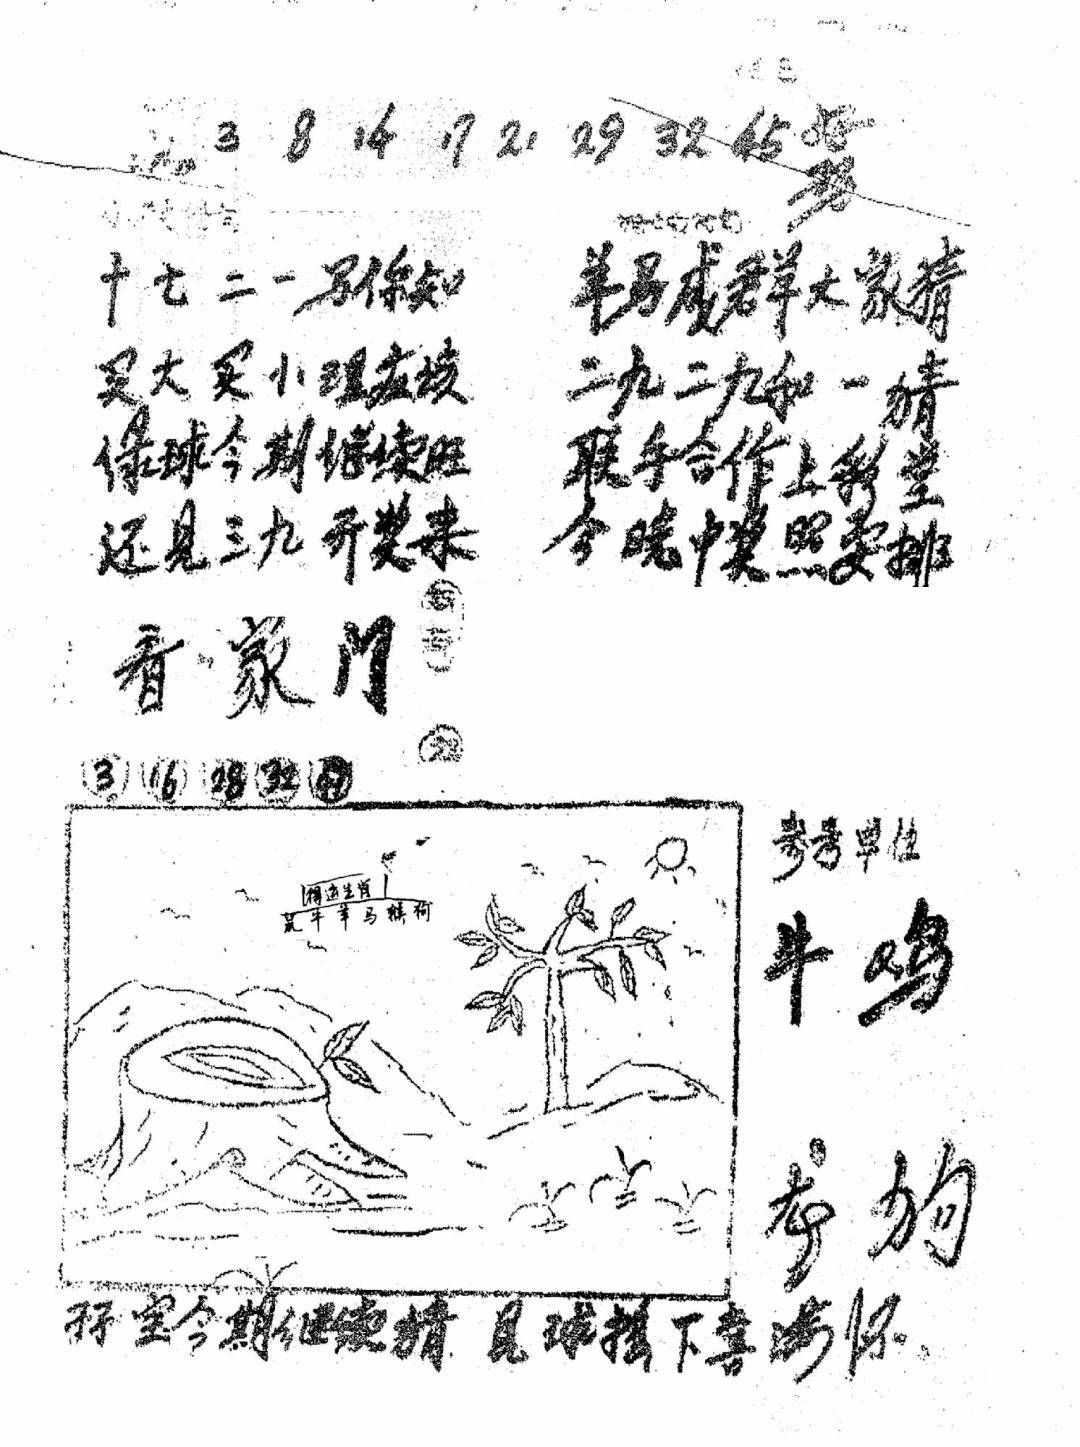 3 8 14 17 21 29 32 45
十七二一 保你知
羊马成群羊大家猜
买大买小理应按
二九二九和一猜
绿球今期继续旺
联手合作上彩堂
还见三九开奖来
今晚中奖照要排
看家门
3 16 28 32
得运生肖
鼠牛羊马猴狗
参考单位
牛 鸡
狗
今期继续猜 见球接下喜